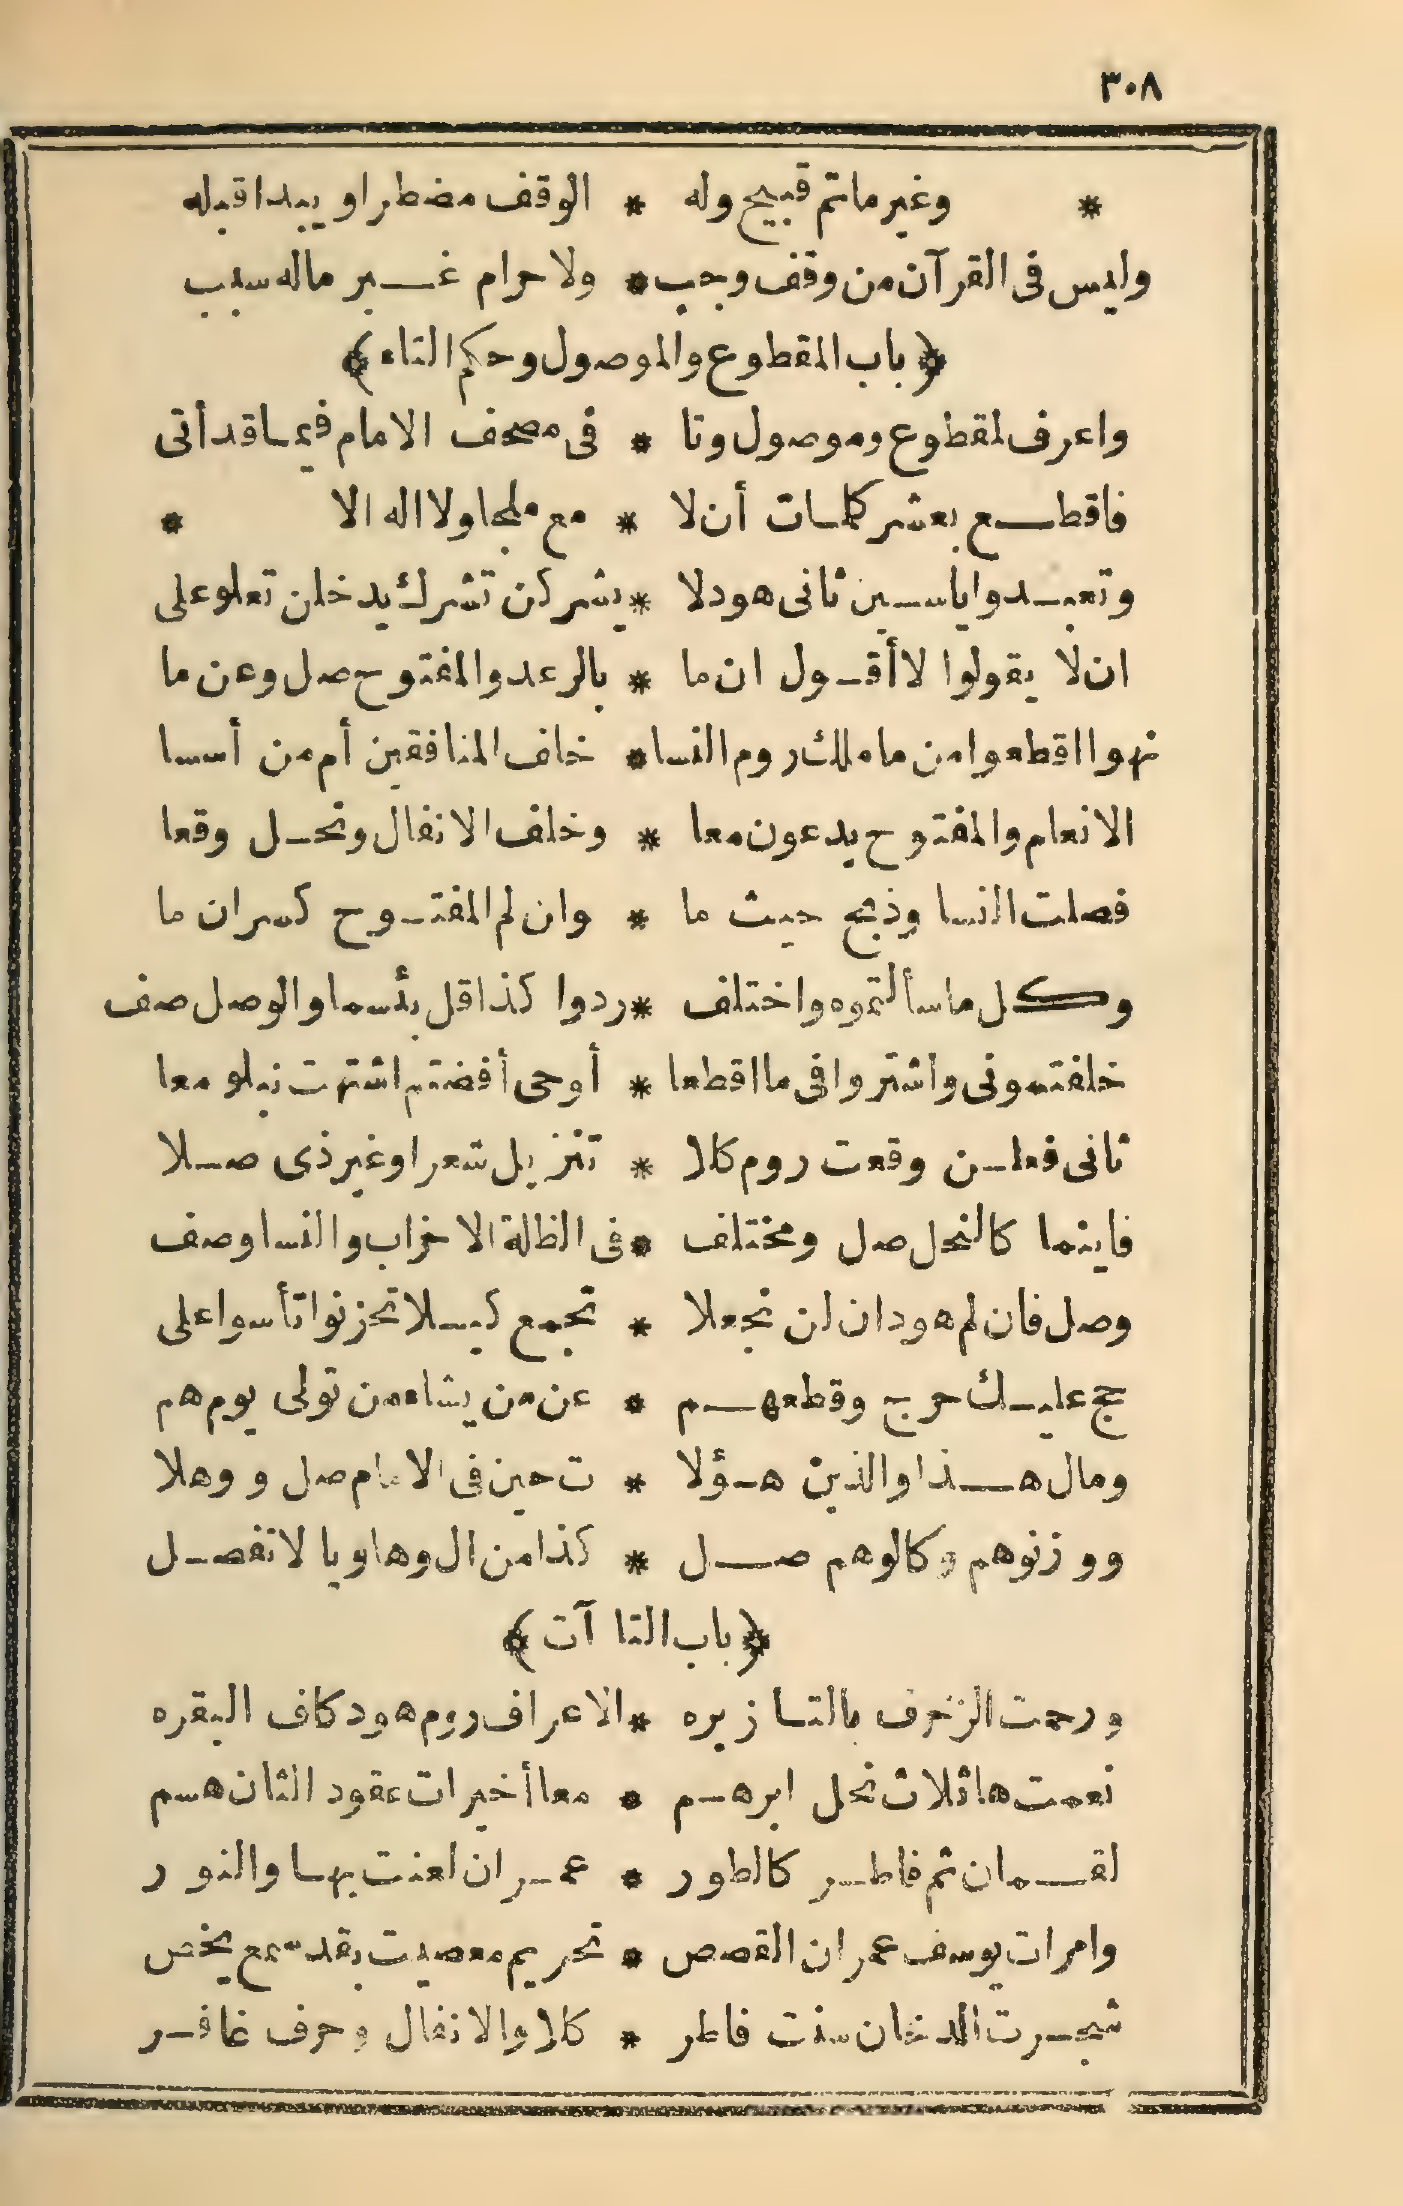 ٣٠٨
* وغير ماتم قبيح وله * الوقف مضطرا ويبدا قبله
وليس فى القرآن من وقف وجب * ولا حرام غير ماله سبب
﴿باب المقطوع والموصول وحكم التاء﴾
واعرف لمقطوع وموصول وتا * فى مصحف الامام فيما قد أتى
فاقطع بعشر كلمات أن لا * مع ملجا ولا اله الا *
وتعبدوا ياسين ثانى هود لا * يشركن تشرك يدخلن تعلو على
ان لا يقولوا لا أقول ان ما * بالرعد والمفتوح صل وعن ما
نهوا اقطعوا من ما ملك روم النسا * خلف المنافقين أم من أسسا
الانعام والمفتوح يدعون معا * وخلف الانفال ونحل وقعا
فصلت النسا وذبح حيث ما * وان لم المفتوح كسر ان ما
وكل ما سألتموه واختلف * ردوا كذا قل بئسما والوصل صف
خلفتمونى واشتروا فى ما اقطعا * أوحى أفضتم اشتهت نبلو معا
ثانى فعلن وقعت روم كلا * تنزيل شعرا وغير ذى صلا
فاينما كالنحل صل ومختلف * فى الظلة الاحزاب والنسا وصف
وصل فان لم هود ان لن نجعلا * نجمع كيلا تحزنوا تأسوا على
حج عليك حرج وقطعهم * عن من يشاء من تولى يوم هم
ومال هذا والذين هؤلا * ت حين فى الامام صل ووهلا
ووزنوهم وكالوهم صل * كذا من ال وها ويا لا تفصل
﴿باب التاآت﴾
ورحمت الزخرف بالتا زبره * الاعراف روم هود كاف البقره
نعمت ها ثلاث نحل ابرهم * معا أخيرات عقود الثان هم
لقمان ثم فاطر كالطور * عمران لعنت بها والنور
وامرات يوسف عمران القصص * تحريم معصيت بقد سمع يخص
شجرت الدخان سنت فاطر * كلا والانفال وحرف غافر